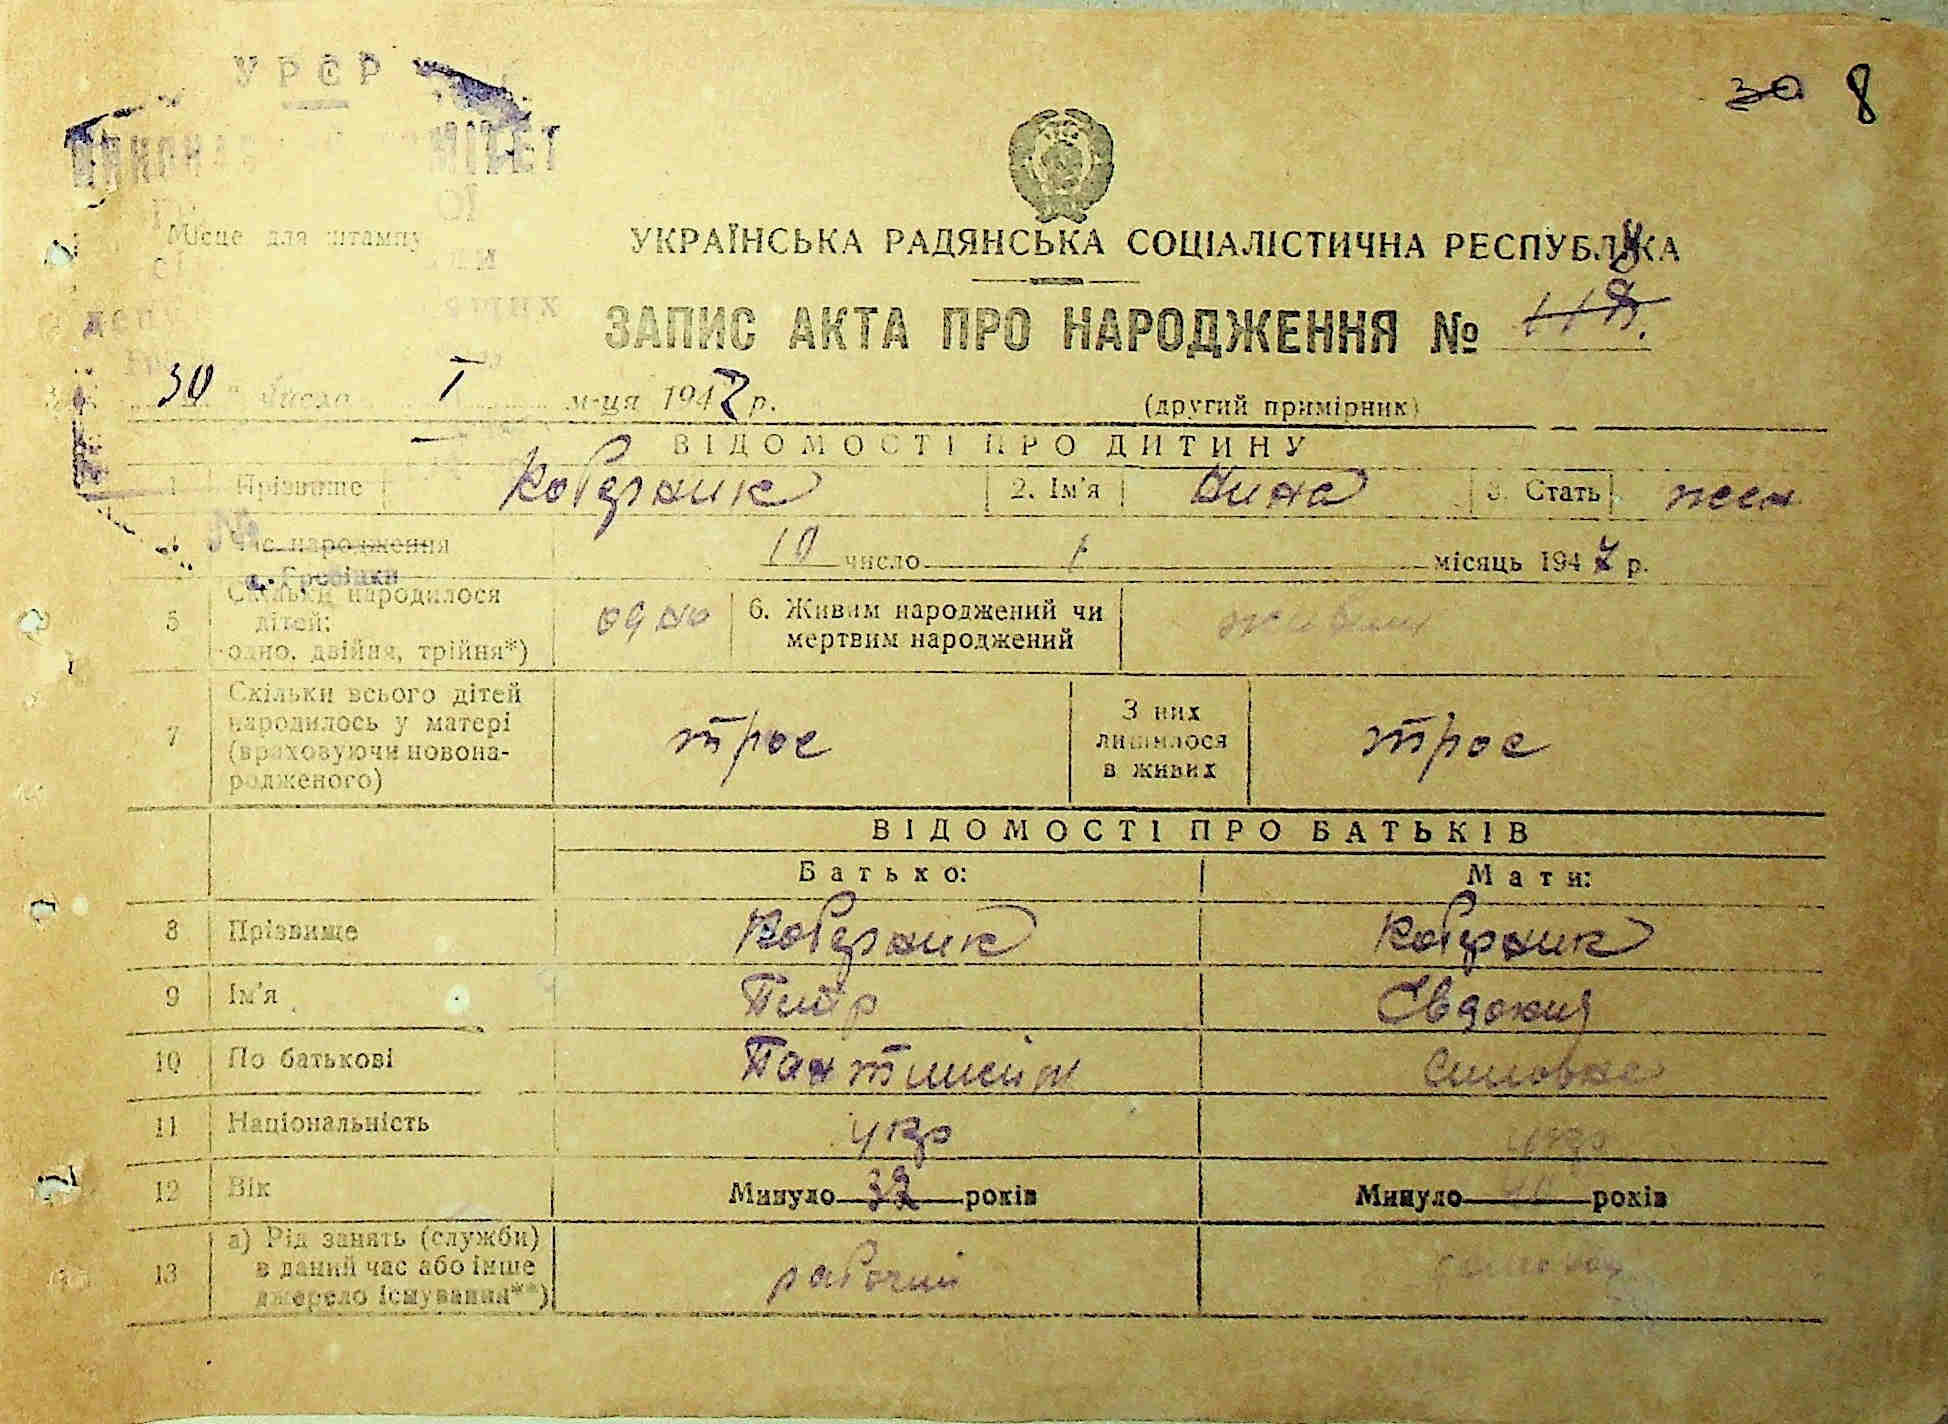 30 8
УРСР
ВИКОНАВ КОМІТЕТ
Місце для штампу
УКРАЇНСЬКА РАДЯНСЬКА СОЦІАЛІСТИЧНА РЕСПУБЛІКА
ЗАПИС АКТА ПРО НАРОДЖЕННЯ № 8
30 " число I м-ця 1947 р.
(другий примірник)
ВІДОМОСТІ ПРО ДИТИНУ
1 Прізвище Коберник 2. Ім'я Нина 3. Стать жен
4 Час народження 10 число 1 місяць 1947 р.
с. Гребінки
5 Скільки народилося дітей: одно, двійня, трійня*) одно 6. Живим народжений чи мертвим народжений живим
7 Скільки всього дітей народилось у матері (враховуючи новонародженого) трое З них лишилося в живих трое
ВІДОМОСТІ ПРО БАТЬКІВ
Батько: Мати:
8 Прізвище Коберник Коберник
9 Ім'я Петр Евдокия
10 По батькові
11 Національність укр укр
12 Вік Минуло 32 років Минуло років
13 а) Рід занять (служби) в даний час або інше джерело існування**) рабочий